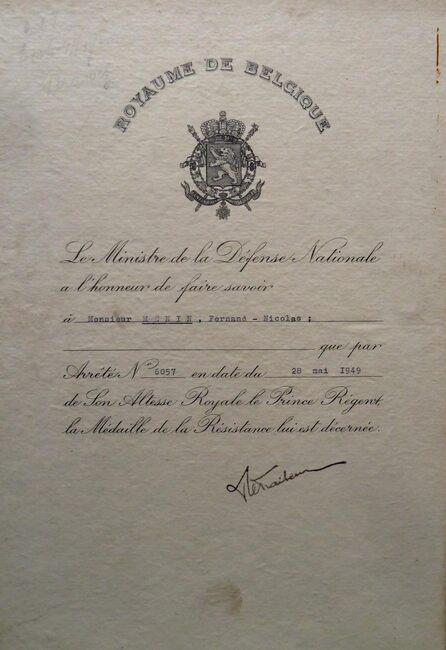 ROYAUME DE BELGIQUE
Le Ministre de la Défense Nationale
a l'honneur de faire savoir
à Monsieur MENIN, Fernand - Nicolas ;
que par
Arrêté Nº 6057 en date du 28 mai 1949
de Son Altesse Royale le Prince Régent,
la Médaille de la Résistance lui est décernée.